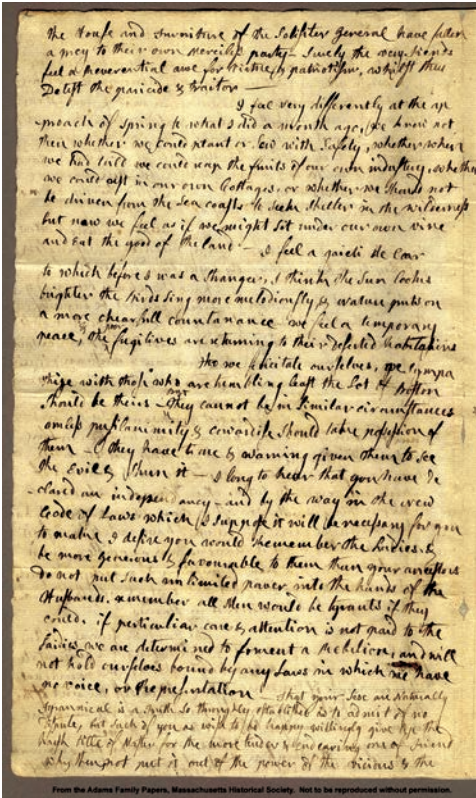 The House and Furniture of the Solisiter General have fallen
a prey to their own merciless party— Surely the very Fiends
feel a Reverential awe for Virtue & patriotism, whilst they
Detest the paricide & traitor—
I feel very differently at the ap
proach of spring to what I did a month ago, we knew not
then whether we could plant or sow with safety, whether when
we had toild we could reap the fruits of our own industery, whether
we could rest in our own Cottages, or whether we should not
be driven from the sea coasts to seek shelter in the wilderness
but now we feel as if we might sit under our own vine
and eat the good of the land— I feel a gaieti de Coar
to which before I was a stranger, I think the Sun looks
brighter the Birds sing more melodiously & Nature puts on
a more chearfull countanance we feel a temporary
peace, & the poor fugitives are returning to their deserted habitations
tho we felicitate ourselves, we sympa
thize with those who are trembling least the Lot of Boston
should be theirs— they cannot be in similar circumstances
unless pusilanimity & cowardise should take possession of
them— they have time & warning given them to see
the Evil & shun it— I long to hear that you have de
clared an independancy—and by the way in the new
Code of Laws which I suppose it will be necessary for you
to make I desire you would Remember the Ladies, &
be more generous & favourable to them than your ancestors
do not put such unlimited power into the hands of the
Husbands. remember all Men would be tyrants if they
could. if perticuliar care & attention is not paid to the
Ladies we are determined to foment a Rebelion, and will
not hold ourselves bound by any Laws in which we have
no voice, or Representation— that your Sex are Naturally
Tyrannical is a Truth so throughly established as to admit of no
dispute, but such of you as wish to be happy willingly give up the
harsh title of Master for the more tender & endearing one of Friend
Why then, not put it out of the power of the vicious & the
From the Adams Family Papers, Massachusetts Historical Society. Not to be reproduced without permission.